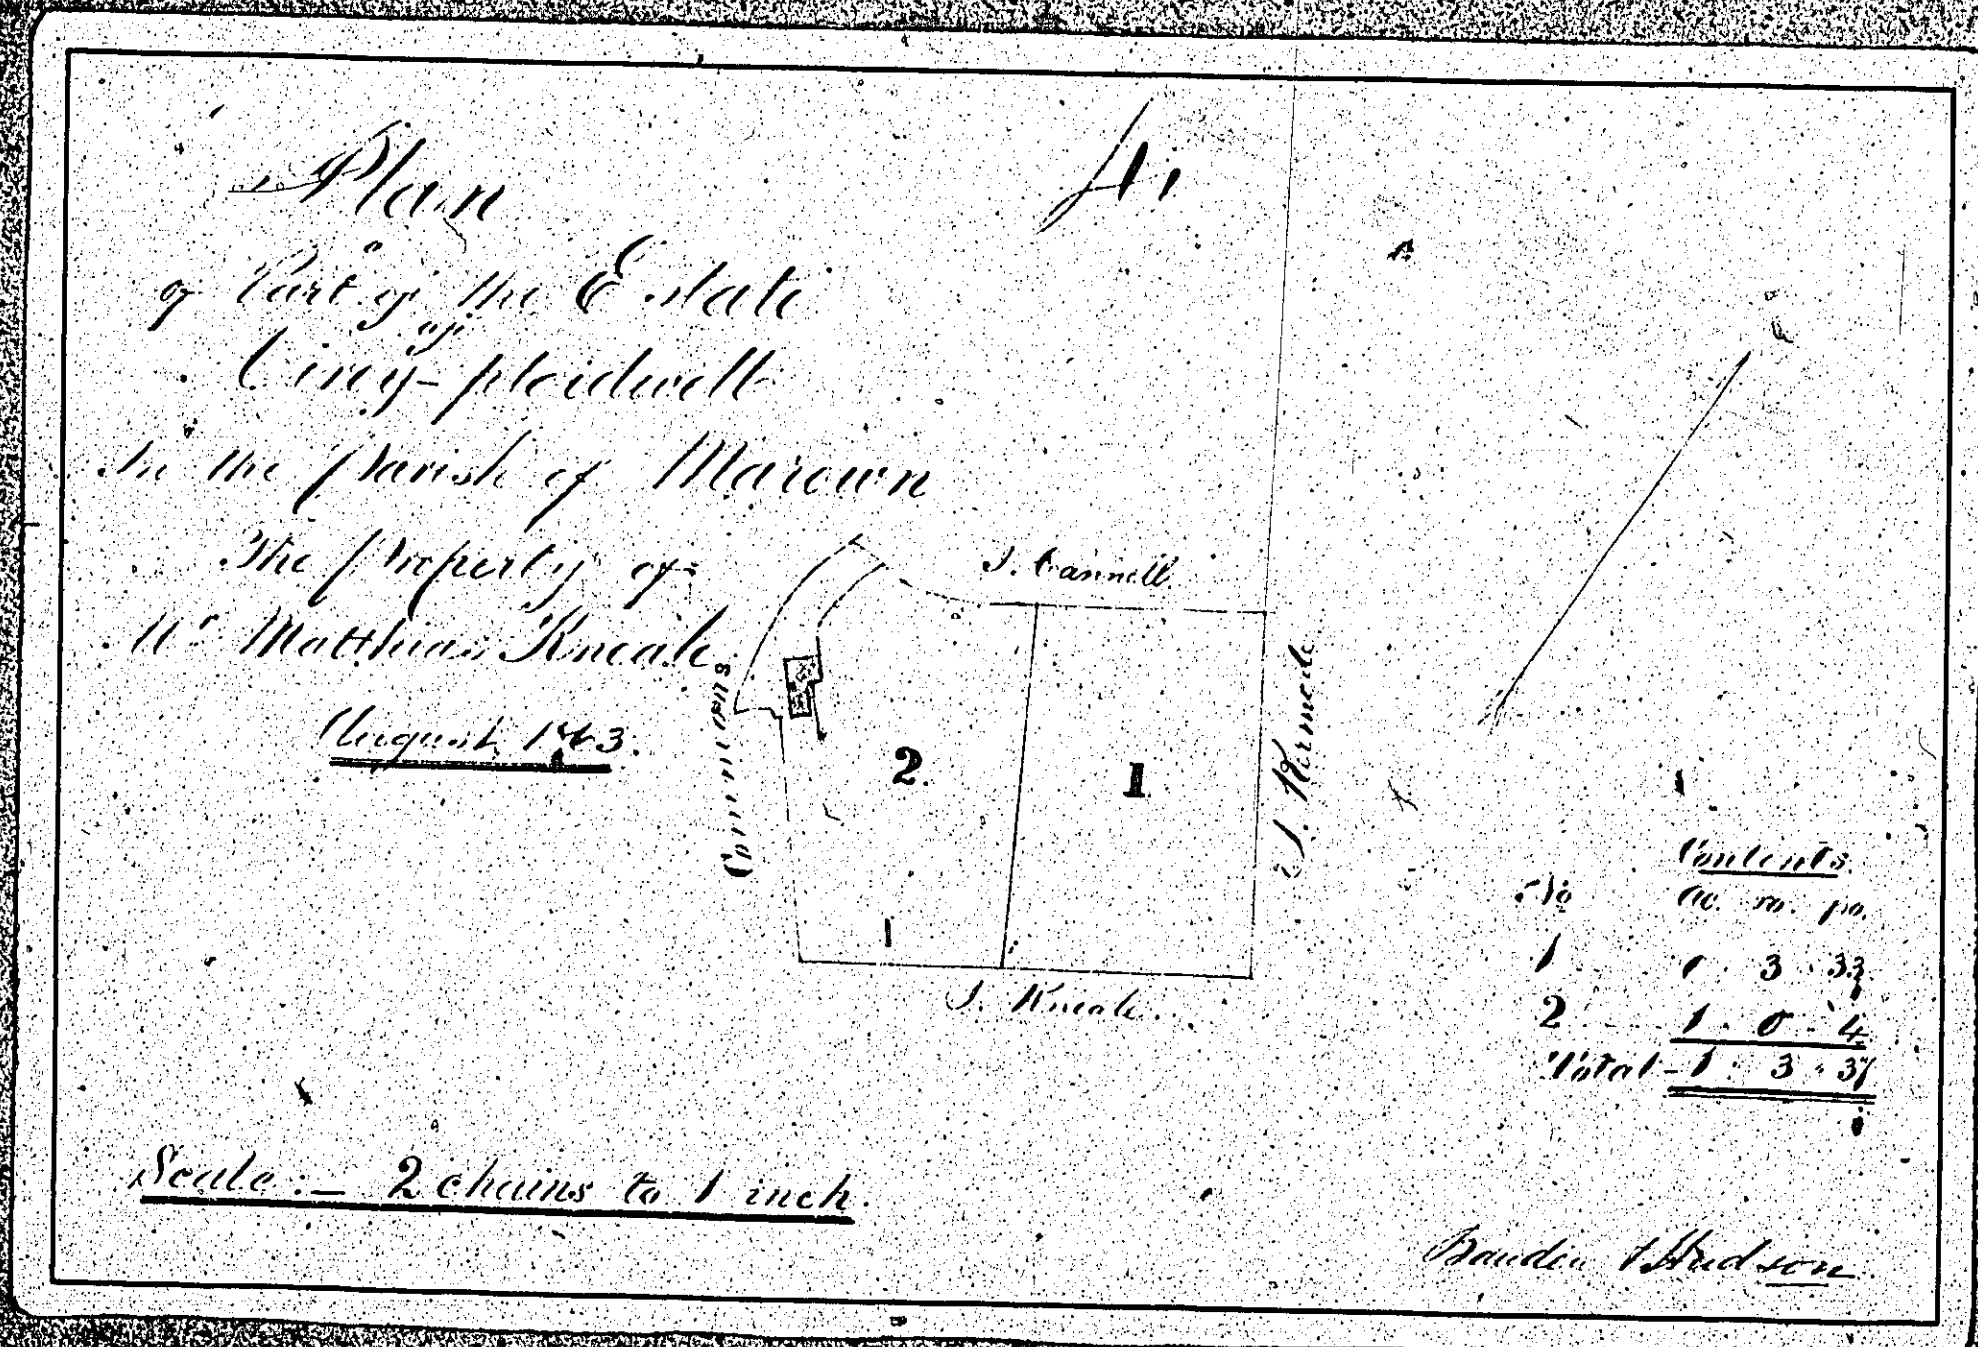 Plan
of Part of the Estate
of
Ciney-ploidwell
In the Parish of Marown
The Property of
Mr Matthias Kneale.
August, 1863.
J. Cannell
Commons
J. Kermeen
2.
1.
J. Kneale.
Contents.
No ac. ro. po.
1 " 3 " 33
2 1 " 0 " 4
Total - 1 : 3 " 37
Scale :- 2 chains to 1 inch.
Hudson